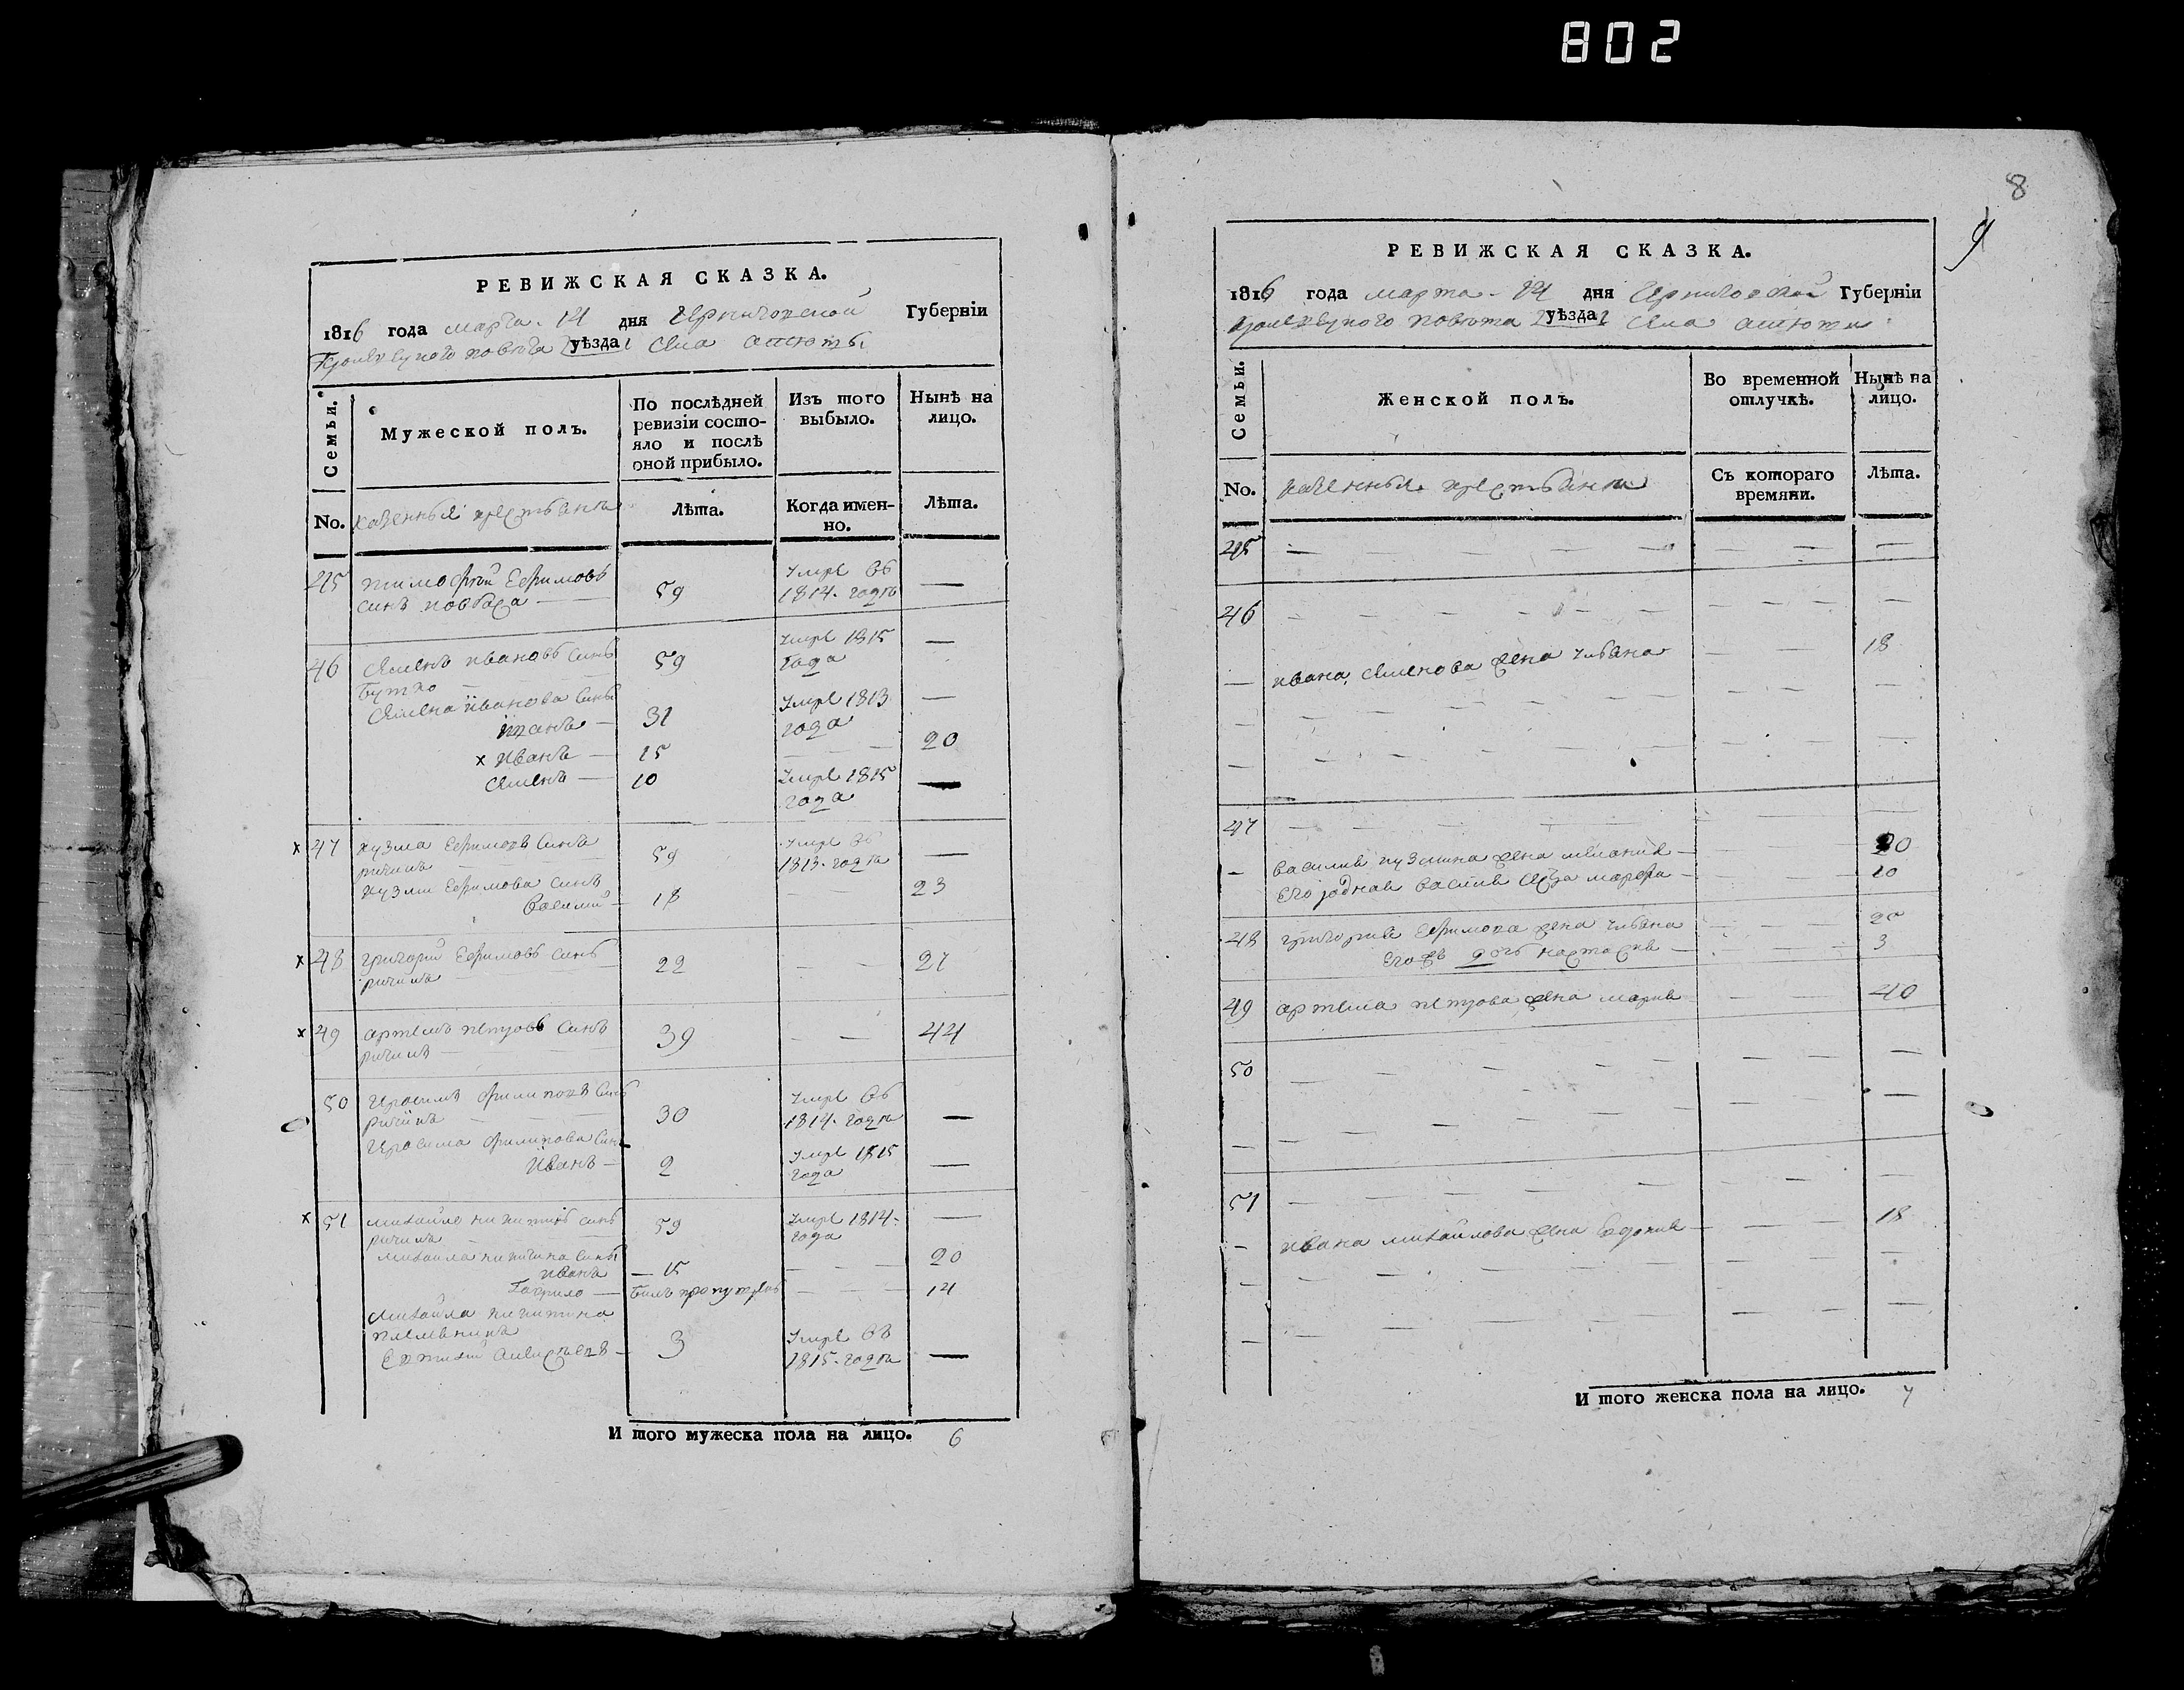 802
РЕВИЖСКАЯ СКАЗКА.
1816 года марта 14 дня Черниговской Губерніи
Кролевецкого повѣта уѣзда села
Семьи.
Мужеской полъ.
По послѣдней
ревизіи состо-
яло и послѣ
оной прибыло.
Изъ того
выбыло.
Нынѣ на
лицо.
No.
казенные крестьяне
Лѣта.
Когда имен-
но.
Лѣта.
45 тимофѣй Ефимовъ 59 Умре въ —
синъ 1814. годѣ
46 Семенъ ивановъ синъ 59 Умре 1815 —
года
Семена иванова сины
31 Умре 1813 —
года
x иванъ — 15 — — 20
Семенъ — 10 Умре 1815 —
года
x 47 кузма Ефимовъ синъ 59 Умре въ —
1813. годѣ
кузми Ефимова синъ
василий — 18 — 23
x 48 григорий Ефимовъ синъ 22 — — 27
x 49 артемъ петровъ синъ 39 — — 44
50 Герасимъ филиповъ синъ 30 Умре въ —
1814. годѣ
Герасима филипова синъ
Иванъ — 2 Умре 1815 —
года
x 51 михайло никитинъ синъ 59 Умре 1814. —
года
михайла никитина сины
иванъ — 15 — — 20
Гаврило — билъ пропущенъ — — 14
михайла никитина
племенникъ
3 Умре въ —
1815. годѣ
И того мужеска пола на лицо. 6
8
9
РЕВИЖСКАЯ СКАЗКА.
1816 года марта 14 дня Черниговской Губерніи
Кролевецкого повѣта уѣзда села
Семьи.
Женской полъ.
Во временной
отлучкѣ.
Нынѣ на
лицо.
No.
казенные крестьянки
Съ котораго
времяни.
Лѣта.
45 — — — —
46 — — — —
— ивана Семенова жена улияна — — 18
47 — — — —
— василия кузмина жена мелания — 20
Его василия марфа — 10
48 григория Ефимова жена улияна — 25
Его дочь настасия — 3
49 артема петрова жена мария — — 40
50 — — — —
51 — — — —
— ивана михайлова жена — — 18
И того женска пола на лицо. 7